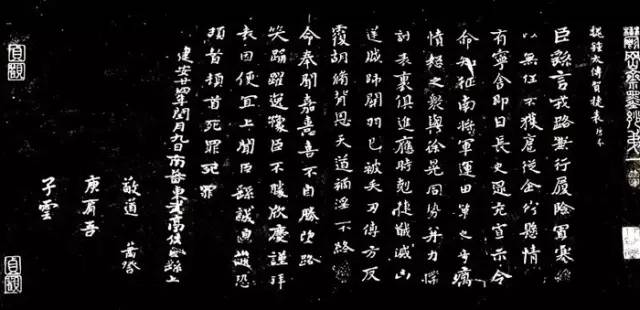 魏鍾太傅賀捷表
臣繇言戎路兼行履險冒寒
以無任不獲扈從企佇懸情
有寧舍即日長史逯充宣示令
命知征南將軍運田單之奇厲
憤怒之衆與徐晃同勢并力撲
討表裏俱進應時剋捷馘滅凶
逆賊帥關羽已被矢刃傅方反
覆胡脩背恩天道禍淫不終
今奉聞嘉憙喜不自勝望路
笑踊躍逸豫臣不勝欣慶謹拜
表因便宜上聞臣繇誠惶誠恐
頓首頓首死罪死罪
建安廿四年閏月九日南蕃東武亭侯臣繇上
敬道
庾肩吾
子雲
貞觀
貞觀